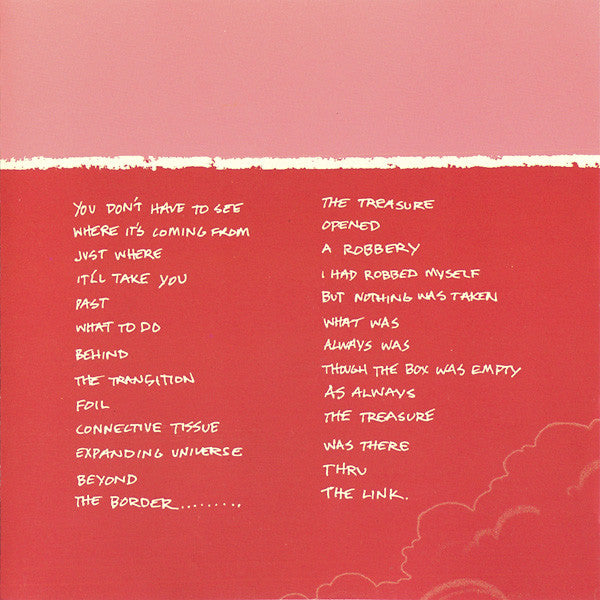 YOU DON'T HAVE TO SEE
WHERE IT'S COMING FROM
JUST WHERE
IT'LL TAKE YOU
PAST
WHAT TO DO
BEHIND
THE TRANSITION
FOIL
CONNECTIVE TISSUE
EXPANDING UNIVERSE
BEYOND
THE BORDER........
THE TREASURE
OPENED
A ROBBERY
I HAD ROBBED MYSELF
BUT NOTHING WAS TAKEN
WHAT WAS
ALWAYS WAS
THOUGH THE BOX WAS EMPTY
AS ALWAYS
THE TREASURE
WAS THERE
THRU
THE LINK.